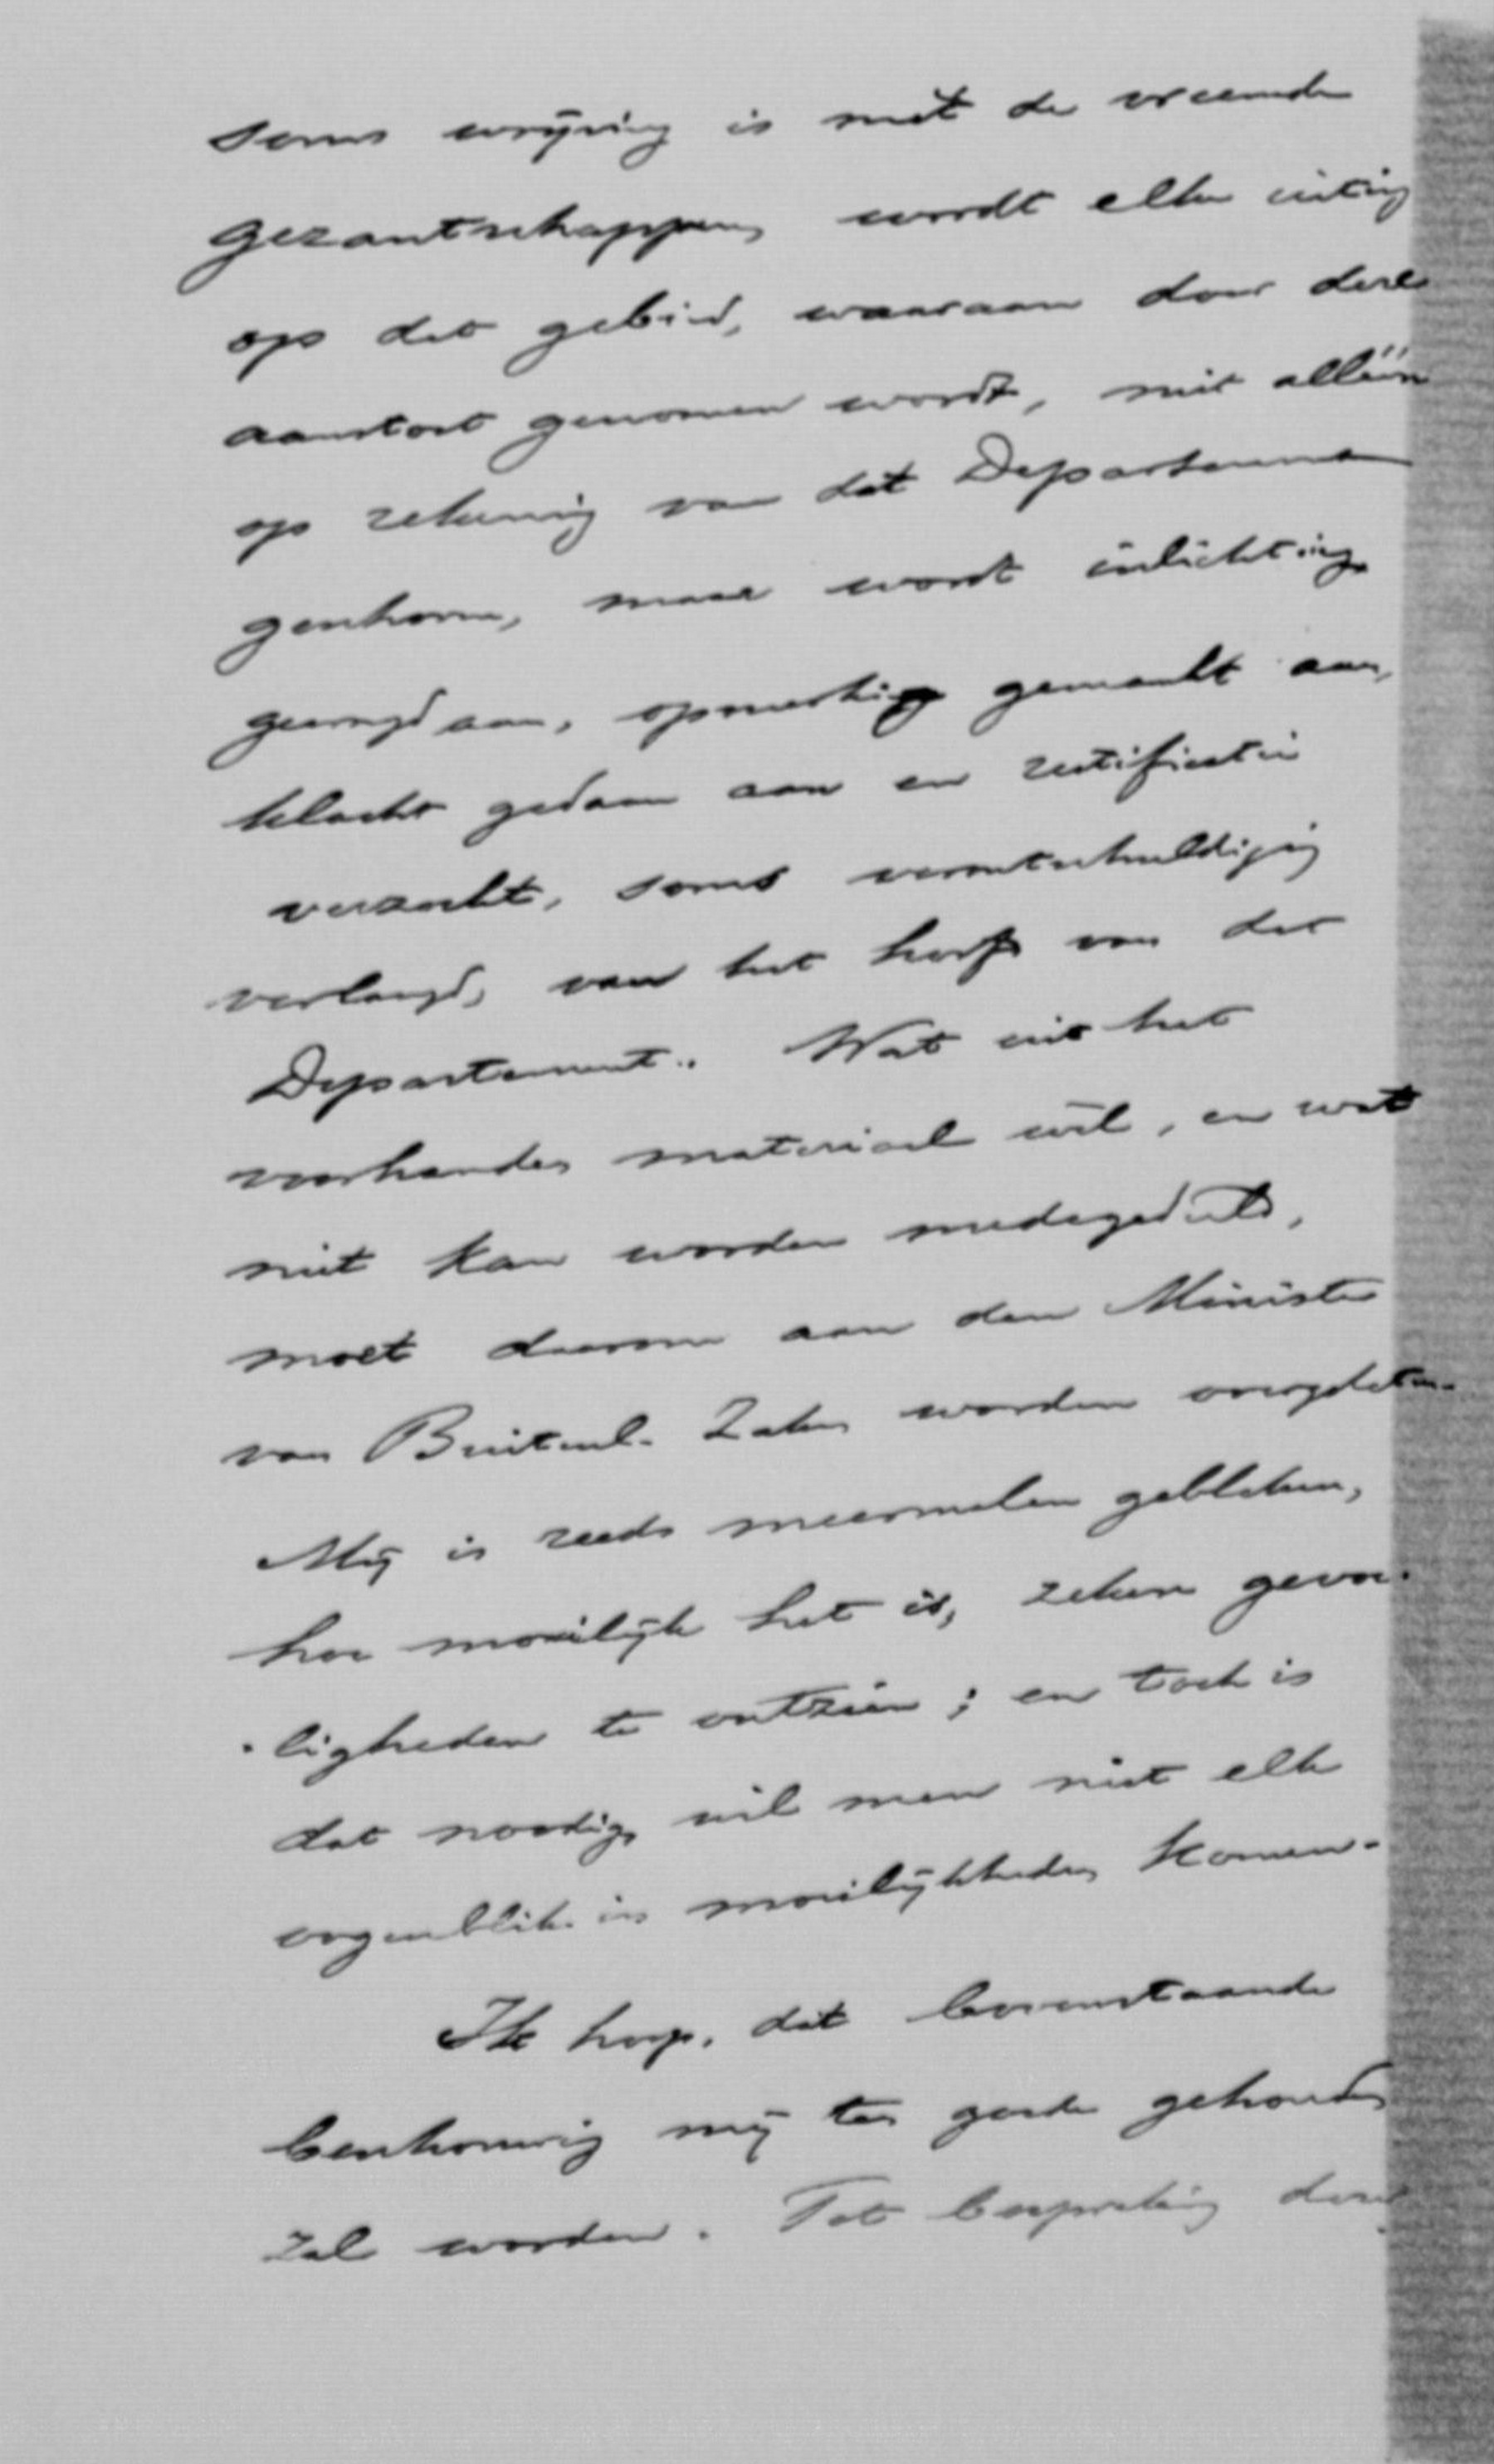 soms wrijving is met de vreemde
gezantschappen, wordt elke uiting
op dat gebied, waaraan door deze
aanstoot genomen wordt, niet alléén
op rekening van dat Departement
geschoven, maar wordt inlichting
gevraagd aan, opmerking gemaakt aan,
klacht gedaan aan en rectificatie
verzocht, soms verontschuldiging
verlangd, van het hoofd van dat
Departement. Wat uit het
voorhanden materiaal wèl, en wat
niet kan worden medegedeeld,
moet daarom aan den Minister
van Buitenl. Zaken worden overgelaten.
Mij is reeds meermalen gebleken,
hoe moeilijk het is, zekere gevoe-
ligheden te ontzien; en toch is
dat noodig, wil men niet elk
oogenblik in moeilijkheden komen.
Ik hoop, dat bovenstaande
beschouwing mij ten goede gehouden
zal worden. Tot bespreking